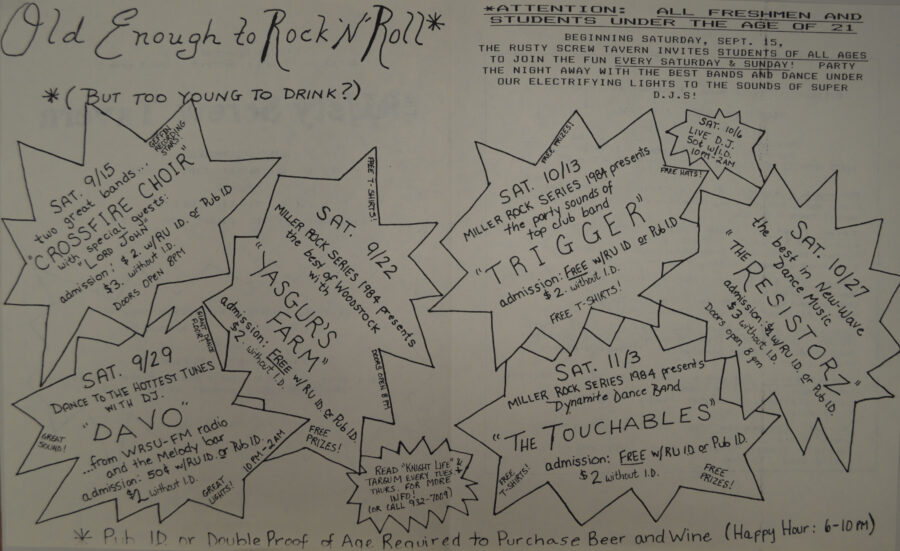 Old Enough to Rock 'N' Roll*
*(But too young to drink?)
*ATTENTION: ALL FRESHMEN AND
STUDENTS UNDER THE AGE OF 21
BEGINNING SATURDAY, SEPT. 15,
THE RUSTY SCREW TAVERN INVITES STUDENTS OF ALL AGES
TO JOIN THE FUN EVERY SATURDAY & SUNDAY! PARTY
THE NIGHT AWAY WITH THE BEST BANDS AND DANCE UNDER
OUR ELECTRIFYING LIGHTS TO THE SOUNDS OF SUPER
D.J.S!
GEFFEN
RECORDING
STARS!
SAT. 9/15
two great bands...
"CROSSFIRE CHOIR"
with special guests:
"LORD JOHN"
admission: $2. w/RU ID. or Pub ID
$3. without I.D.
DOORS OPEN 8PM
FREE T-SHIRTS!
SAT. 9/22
MILLER ROCK SERIES 1984 presents
the best of WOODSTOCK
with
"YASGUR'S
FARM"
admission: FREE w/RU ID or Pub ID.
$2. without I.D.
DOORS OPEN 8 PM
FREE
PRIZES!
GIANT DANCE
FLOOR!
SAT. 9/29
DANCE TO THE HOTTEST TUNES
WITH DJ.
"DAVO"
...from WRSU-FM radio
and the Melody bar
admission: 50¢ w/RU ID. or Pub ID.
$1 without I.D.
10 PM-2AM
GREAT
SOUND!
GREAT
LIGHTS!
READ "KNIGHT LIFE" &
TARGUM EVERY TUES &
THURS FOR MORE
INFO!
(OR CALL 932-7009)
SAT. 10/6
LIVE D.J.
50¢ w/I.D.
10PM-2AM
FREE PRIZES!
FREE HATS!
SAT. 10/13
MILLER ROCK SERIES 1984 presents
the party sounds of
top club band
"TRIGGER"
admission: FREE w/RU ID or Pub ID
$2. without I.D.
FREE T-SHIRTS!
SAT. 10/27
the best in New-Wave
Dance Music
"THE RESISTORZ"
admission: $1 w/RU ID. or Pub ID.
$3 without I.D.
Doors open 8 pm
SAT. 11/3
MILLER ROCK SERIES 1984 presents
Dynamite Dance Band
"THE TOUCHABLES"
admission: FREE w/RU ID or Pub ID.
$2 without I.D.
FREE
T-SHIRTS!
FREE
PRIZES!
* Pub ID or Double Proof of Age Required to Purchase Beer and Wine (Happy Hour: 6-10 PM)